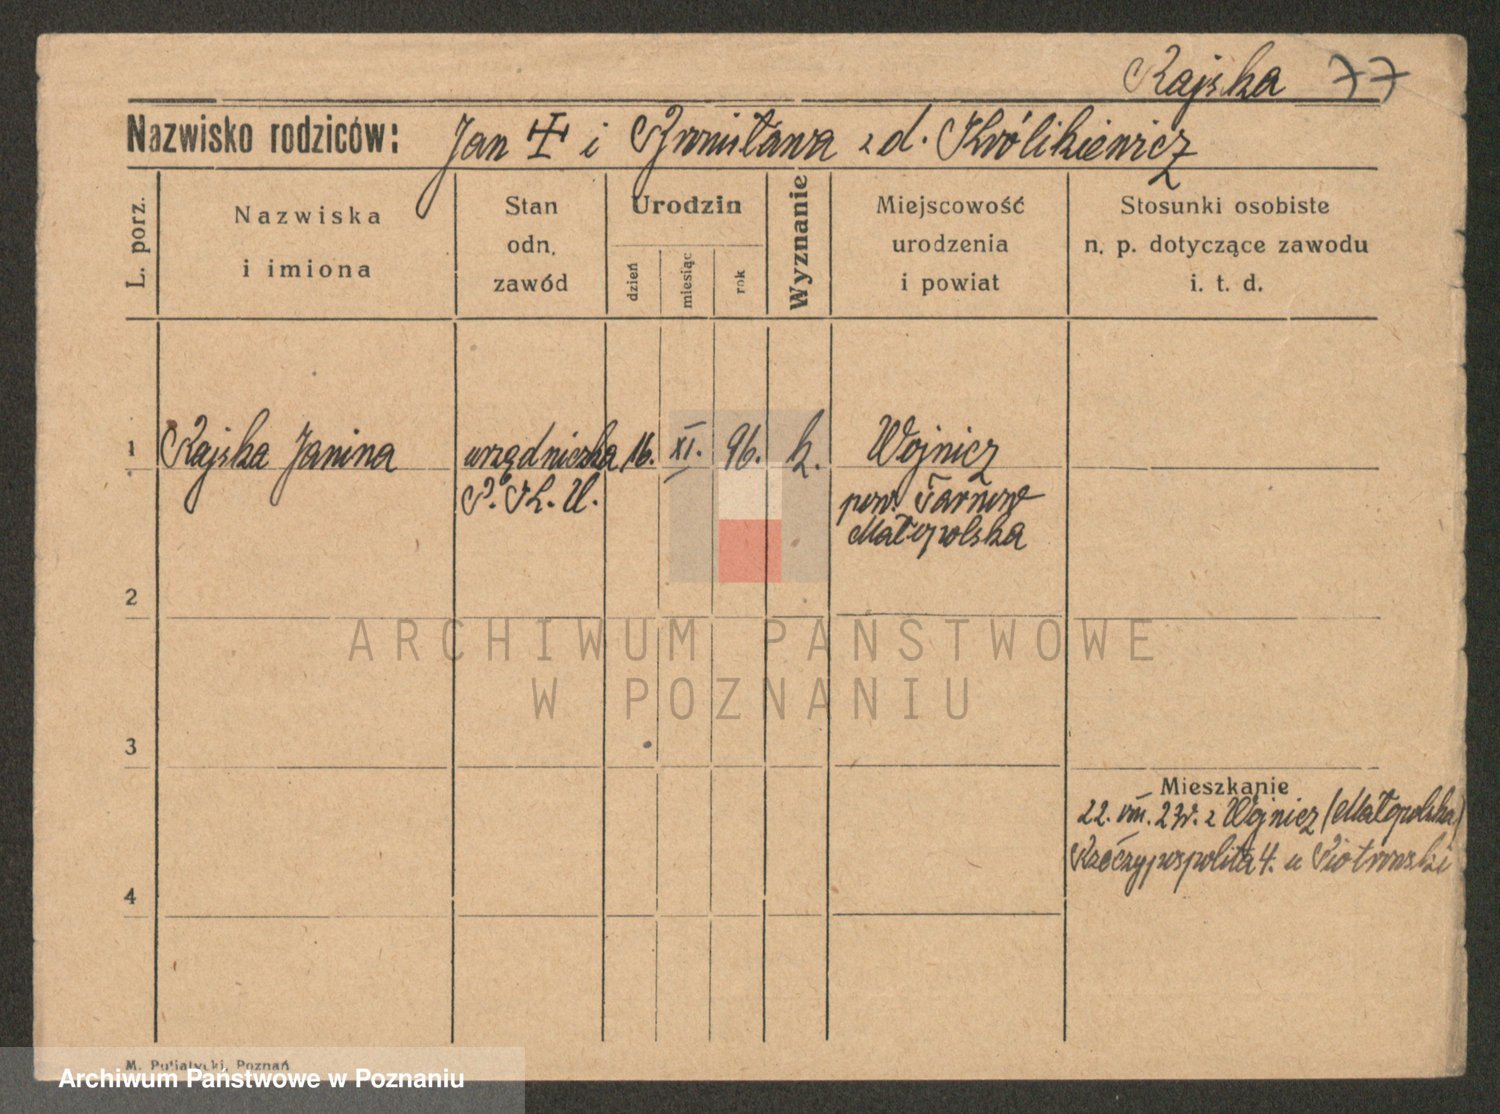 Rajska 77
Nazwisko rodziców: Jan i Bronisława z d. Królikiewicz
L. porz.
Nazwiska
i imiona
Stan
odn.
zawód
Urodzin
dzień
miesiąc
rok
Wyznanie
Miejscowość
urodzenia
i powiat
Stosunki osobiste
n. p. dotyczące zawodu
i. t. d.
1 Rajska Janina urzędniczka 16. XI. 96. k. Wojnicz
P. K. U. pow. Tarnow
Małopolska
2
ARCHIWUM PAŃSTWOWE
W POZNANIU
3
Mieszkanie
22. VIII. 23r. z Wojnicz (Małopolska)
Rzeczypospolita 4. u Piotrowski
4
M. Putiatycki, Poznań
Archiwum Państwowe w Poznaniu